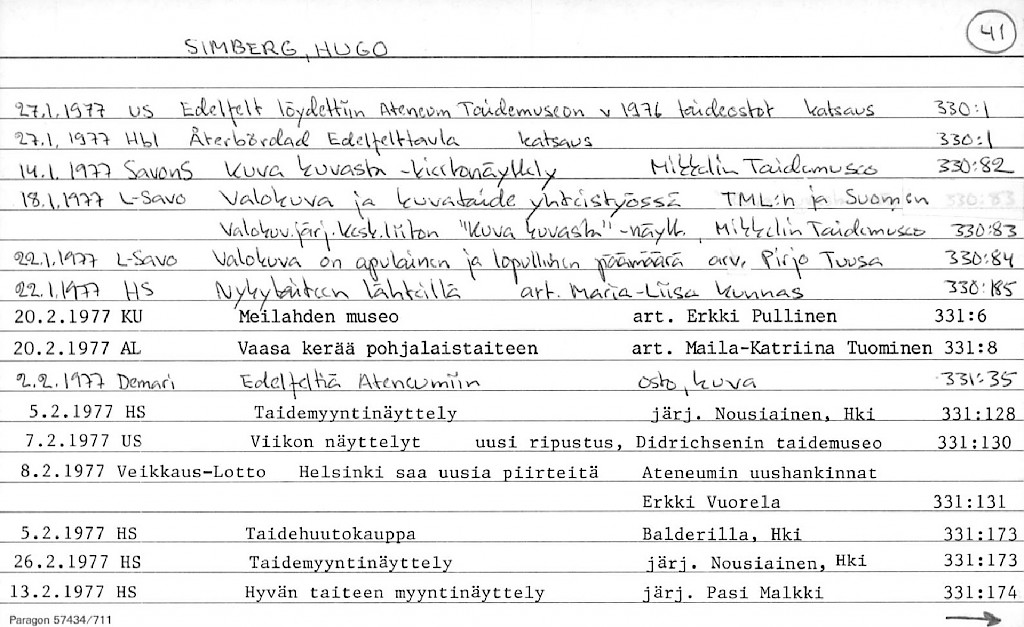 41
SIMBERG, HUGO
27.1.1977 US Edelfelt löydettiin Ateneum Taidemuseon v 1976 taideostot katsaus 330:1
27.1.1977 Hbl Återbördad Edelfelttavla katsaus 330:1
14.1.1977 SavonS Kuva kuvasta -kiertonäyttely Mikkelin Taidemuseo 330:82
18.1.1977 L-Savo Valokuva ja kuvataide yhteistyössä TML:n ja Suomen 330:83
Valokuv.järj.kesk.liiton "Kuva kuvasta" -näytt., Mikkelin Taidemuseo 330:83
22.1.1977 L-Savo Valokuva on apulainen ja lopullinen päämäärä arv. Pirjo Tuusa 330:84
22.1.1977 HS Nykytaiteen lähteillä art. Maria-Liisa Kunnas 330:185
20.2.1977 KU Meilahden museo art. Erkki Pullinen 331:6
20.2.1977 AL Vaasa kerää pohjalaistaiteen art. Maila-Katriina Tuominen 331:8
2.2.1977 Demari Edelfeltiä Ateneumiin osto, kuva 331:35
5.2.1977 HS Taidemyyntinäyttely järj. Nousiainen, Hki 331:128
7.2.1977 US Viikon näyttelyt uusi ripustus, Didrichsenin taidemuseo 331:130
8.2.1977 Veikkaus-Lotto Helsinki saa uusia piirteitä Ateneumin uushankinnat
Erkki Vuorela 331:131
5.2.1977 HS Taidehuutokauppa Balderilla, Hki 331:173
26.2.1977 HS Taidemyyntinäyttely järj. Nousiainen, Hki 331:173
13.2.1977 HS Hyvän taiteen myyntinäyttely järj. Pasi Malkki 331:174
Paragon 57434/711